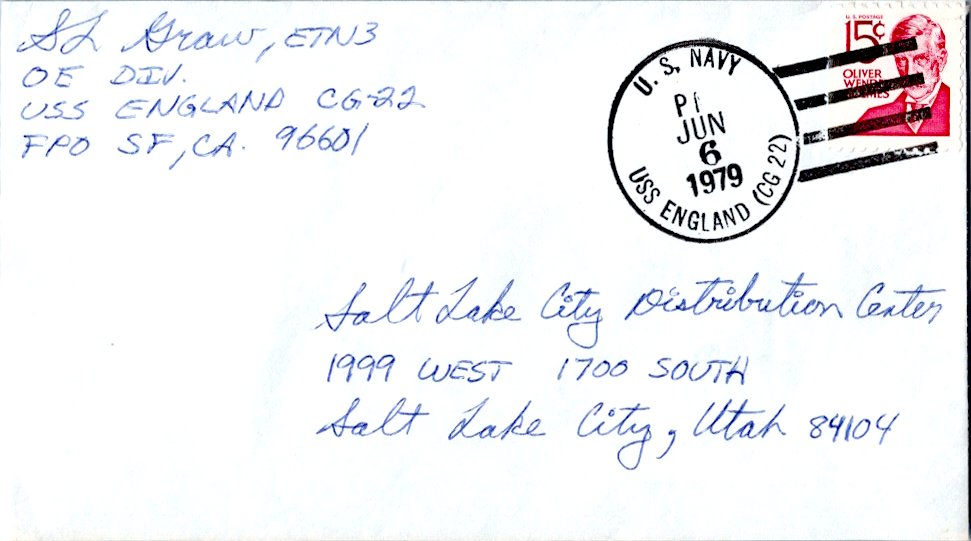 SL Graw, ETN3
OE DIV.
USS ENGLAND CG-22
FPO SF, CA. 96601
U.S. POSTAGE
15¢
OLIVER
WENDELL
HOLMES
U.S. NAVY
JUN
6
1979
USS ENGLAND (CG 22)
Salt Lake City Distribution Center
1999 WEST 1700 SOUTH
Salt Lake City, Utah 84104